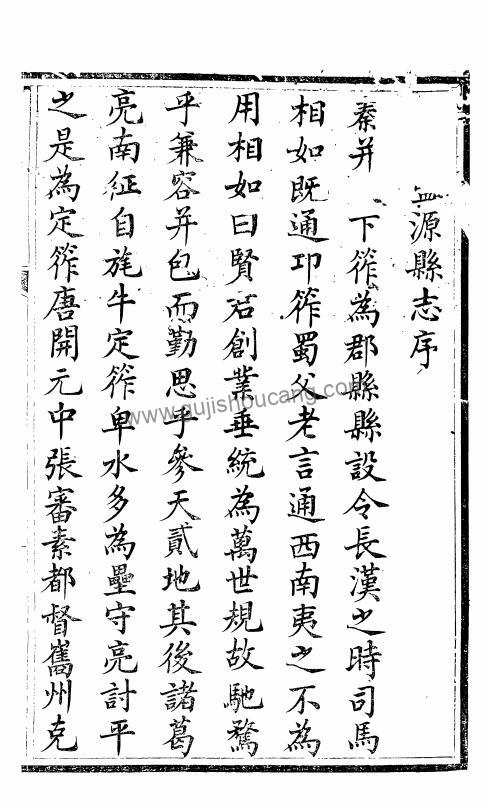 源縣志序
秦并 下筰為郡縣縣設令長漢之時司馬
相如既通卭筰蜀父老言通西南夷之不為
用相如曰賢君創業垂統為萬世規故馳騖
乎兼容并包而勤思乎參天貳地其後諸葛
亮南征自旄牛定筰卑水多為壘守亮討平
之是為定筰唐開元中張審素都督巂州克
www.gujishoucang.com